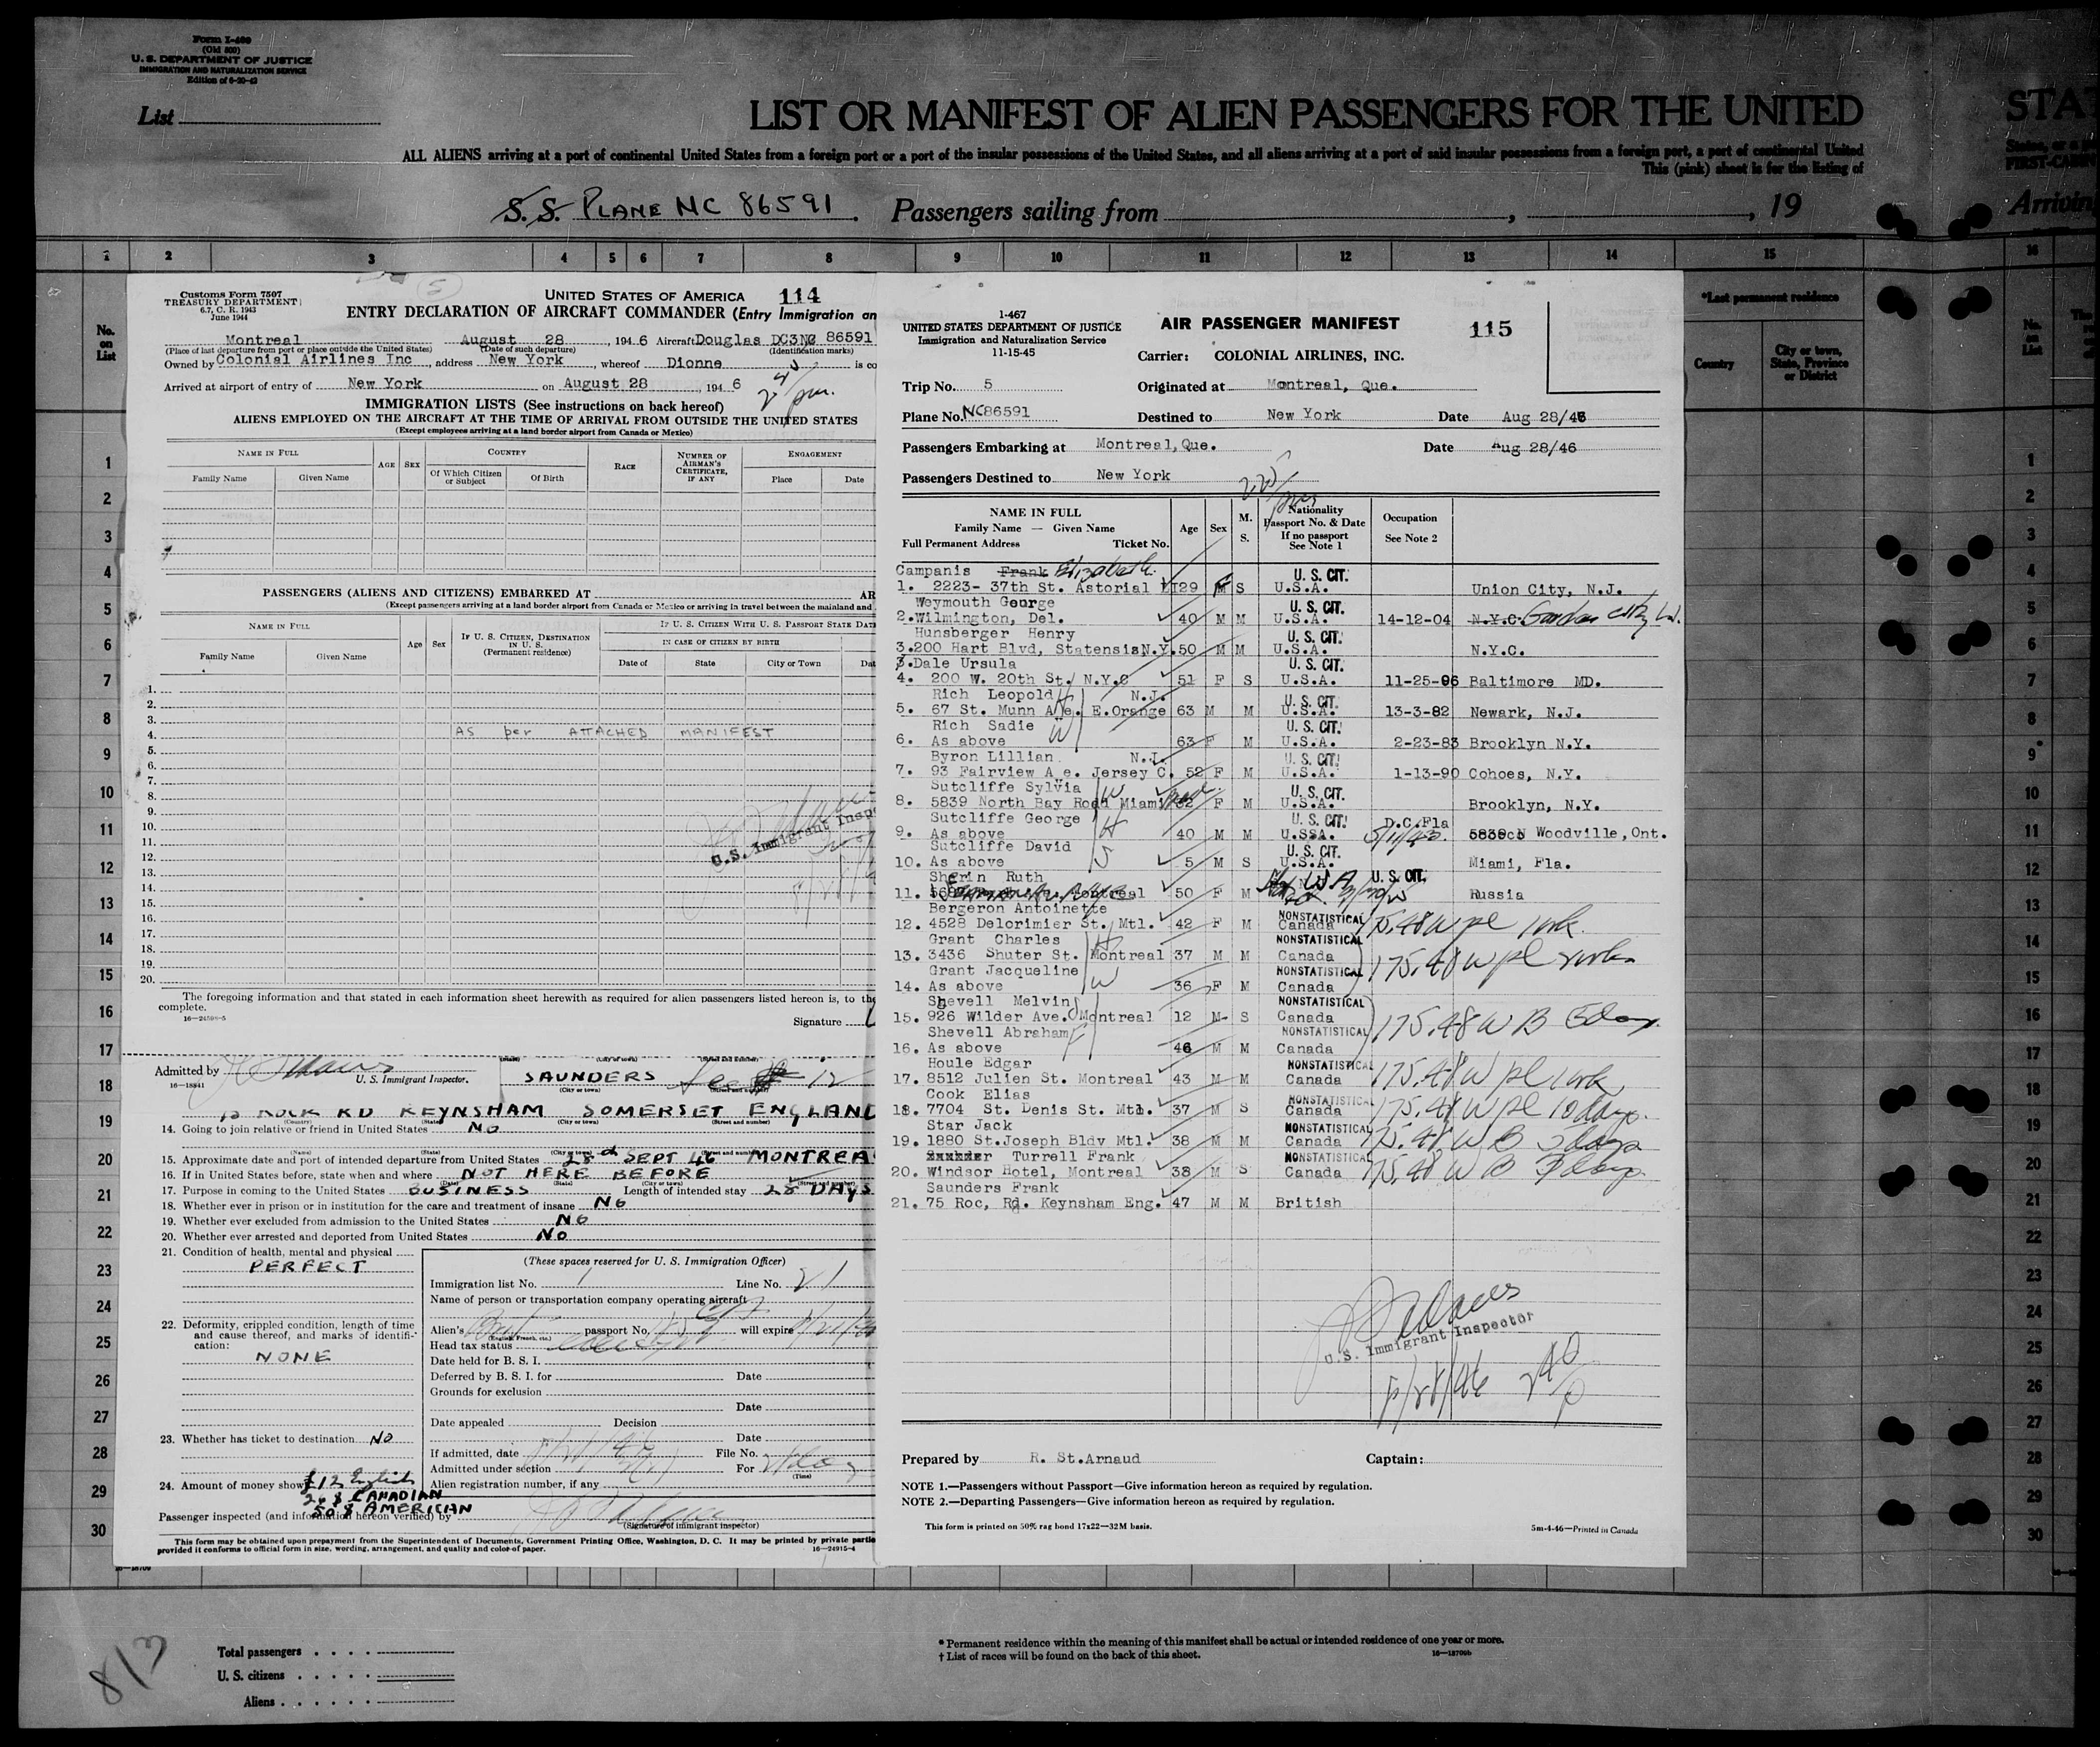 Form I-400
(Old 500)
U. S. DEPARTMENT OF JUSTICE
IMMIGRATION AND NATURALIZATION SERVICE
Edition of 6-20-43
List
LIST OR MANIFEST OF ALIEN PASSENGERS FOR THE UNITED
STA
ALL ALIENS arriving at a port of continental United States from a foreign port or a port of the insular possessions of the United States, and all aliens arriving at a port of said insular possessions from a foreign port, a port of continental United
This (pink) sheet is for the listing of
S.S. PLANE NC 86591. Passengers sailing from , , 19
Arrivin
1 2 3 4 5 6 7 8 9 10 11 12 13 14 15 16
No. on List
*Last permanent residence
Country
City or town, State, Province or District
No. on List
1
2
3
4
5
6
7
8
9
10
11
12
13
14
15
16
17
18
19
20
21
22
23
24
25
26
27
28
29
30
Customs Form 7507
TREASURY DEPARTMENT
6.7, C. R. 1943
June 1944
UNITED STATES OF AMERICA 114
ENTRY DECLARATION OF AIRCRAFT COMMANDER (Entry Immigration an
Montreal August 28, 1946 Aircraft Douglas DC3NC 86591
(Place of last departure from port or place outside the United States) (Date of such departure) (Identification marks)
Owned by Colonial Airlines Inc, address New York, whereof Dionne is co
Arrived at airport of entry of New York on August 28, 1946
IMMIGRATION LISTS (See instructions on back hereof)
ALIENS EMPLOYED ON THE AIRCRAFT AT THE TIME OF ARRIVAL FROM OUTSIDE THE UNITED STATES
(Except employees arriving at a land border airport from Canada or Mexico)
NAME IN FULL AGE SEX COUNTRY RACE NUMBER OF AIRMAN'S CERTIFICATE, IF ANY ENGAGEMENT
Family Name Given Name Of Which Citizen or Subject Of Birth Place Date
PASSENGERS (ALIENS AND CITIZENS) EMBARKED AT AR
(Except passengers arriving at a land border airport from Canada or Mexico or arriving in travel between the mainland and
NAME IN FULL Age Sex IF U. S. CITIZEN, DESTINATION IN U. S. (Permanent residence) IF U. S. CITIZEN WITH U. S. PASSPORT STATE DAT
IN CASE OF CITIZEN BY BIRTH
Family Name Given Name Date of State City or Town Dat
1.
2.
3.
4. AS per ATTACHED MANIFEST
5.
6.
7.
8.
9.
10.
11.
12.
13.
14.
15.
16.
17.
18.
19.
20.
U.S. Immigrant Insp
The foregoing information and that stated in each information sheet herewith as required for alien passengers listed hereon is, to the
complete.
16—24598-5
Signature
Admitted by
16—18841
U. S. Immigrant Inspector.
SAUNDERS
(City or town)
ROCK RD KEYNSHAM SOMERSET ENGLAND
(Country) (State) (City or town) (Street and number)
14. Going to join relative or friend in United States NO
15. Approximate date and port of intended departure from United States 28th SEPT 46 MONTREA
16. If in United States before, state when and where NOT HERE BEFORE
17. Purpose in coming to the United States BUSINESS Length of intended stay 28 DAYS
18. Whether ever in prison or in institution for the care and treatment of insane NO
19. Whether ever excluded from admission to the United States NO
20. Whether ever arrested and deported from United States NO
21. Condition of health, mental and physical
PERFECT
22. Deformity, crippled condition, length of time and cause thereof, and marks of identification:
NONE
23. Whether has ticket to destination NO
24. Amount of money shown £12 English
CANADIAN
50 $ AMERICAN
Passenger inspected (and information hereon verified) by
(These spaces reserved for U. S. Immigration Officer)
Immigration list No. 1 Line No. 21
Name of person or transportation company operating aircraft
Alien's passport No. will expire
(English, French, etc.)
Head tax status
Date held for B. S. I.
Deferred by B. S. I. for Date
Grounds for exclusion
Date
Date appealed Decision
Date
If admitted, date File No.
Admitted under section For
(Time)
Alien registration number, if any
(Signature of immigrant inspector)
This form may be obtained upon prepayment from the Superintendent of Documents, Government Printing Office, Washington, D. C. It may be printed by private partie
provided it conforms to official form in size, wording, arrangement, and quality and color of paper.
16—24915-4
I-467
UNITED STATES DEPARTMENT OF JUSTICE
Immigration and Naturalization Service
11-15-45
AIR PASSENGER MANIFEST 115
Carrier: COLONIAL AIRLINES, INC.
Trip No. 5 Originated at Montreal, Que.
Plane No. NC86591 Destined to New York Date Aug 28/46
Passengers Embarking at Montreal, Que. Date Aug 28/46
Passengers Destined to New York
NAME IN FULL
Family Name — Given Name
Full Permanent Address Ticket No.
Age Sex M. S. Nationality Passport No. & Date If no passport See Note 1 Occupation See Note 2
Campanis Frank Elizabeth U. S. CIT.
1. 2223- 37th St. Astorial LI 29 M S U.S.A. Union City, N.J.
Weymouth George U. S. CIT.
2. Wilmington, Del. 40 M M U.S.A. 14-12-04 N.Y.C. Garden City
Hunsberger Henry U. S. CIT.
3. 200 Hart Blvd, StatensisN.Y. 50 M M U.S.A. N.Y.C.
3. Dale Ursula U. S. CIT.
4. 200 W. 20th St. N.Y.C 51 F S U.S.A. 11-25-96 Baltimore MD.
Rich Leopold H N.J. U. S. CIT.
5. 67 St. Munn Ave. E.Orange 63 M M U.S.A. 13-3-82 Newark, N.J.
Rich Sadie W U. S. CIT.
6. As above 63 F M U.S.A. 2-23-83 Brooklyn N.Y.
Byron Lillian N.J. U. S. CIT.
7. 93 Fairview A e. Jersey C. 52 F M U.S.A. 1-13-90 Cohoes, N.Y.
Sutcliffe Sylvia W U. S. CIT.
8. 5839 North Bay Road Miami 32 F M U.S.A. Brooklyn, N.Y.
Sutcliffe George H U. S. CIT. D.C.Fla
9. As above 40 M M U.SSA. Woodville, Ont.
Sutcliffe David S U. S. CIT.
10. As above 5 M S U.S.A. Miami, Fla.
Sherin Ruth U. S. CIT.
11. Montreal 50 F M Russia
Bergeron Antoinette NONSTATISTICAL
12. 4528 Delorimier St. Mtl. 42 F M Canada 175.48 W pl 1 wk.
Grant Charles H NONSTATISTICAL
13. 3436 Shuter St. Montreal 37 M M Canada 175.48 W pl
Grant Jacqueline W NONSTATISTICAL
14. As above 36 F M Canada
Shevell Melvin S NONSTATISTICAL
15. 926 Wilder Ave. Montreal 12 M S Canada 175.48 W B
Shevell Abraham F NONSTATISTICAL
16. As above 46 M M Canada
Houle Edgar NONSTATISTICAL
17. 8512 Julien St. Montreal 43 M M Canada 175.48 W pl 1 wk
Cook Elias NONSTATISTICAL
18. 7704 St. Denis St. Mtl. 37 M S Canada 175.48 W pl 10 days.
Star Jack NONSTATISTICAL
19. 1880 St.Joseph Bldv Mtl. 38 M M Canada 175.48 W B days
Turrell Frank NONSTATISTICAL
20. Windsor Hotel, Montreal 38 M S Canada 175.48 W B days.
Saunders Frank
21. 75 Roc, Rd. Keynsham Eng. 47 M M British
U.S. Immigrant Inspector
8/28/46
Prepared by R. St.Arnaud Captain:
NOTE 1.—Passengers without Passport—Give information hereon as required by regulation.
NOTE 2.—Departing Passengers—Give information hereon as required by regulation.
This form is printed on 50% rag bond 17x22—32M basis.
5m-4-46—Printed in Canada
1
2
3
4
5
6
7
8
9
10
11
12
13
14
15
16
17
18
19
20
21
22
23
24
25
26
27
28
29
30
8/3
Total passengers
U. S. citizens
Aliens
* Permanent residence within the meaning of this manifest shall be actual or intended residence of one year or more.
† List of races will be found on the back of this sheet.